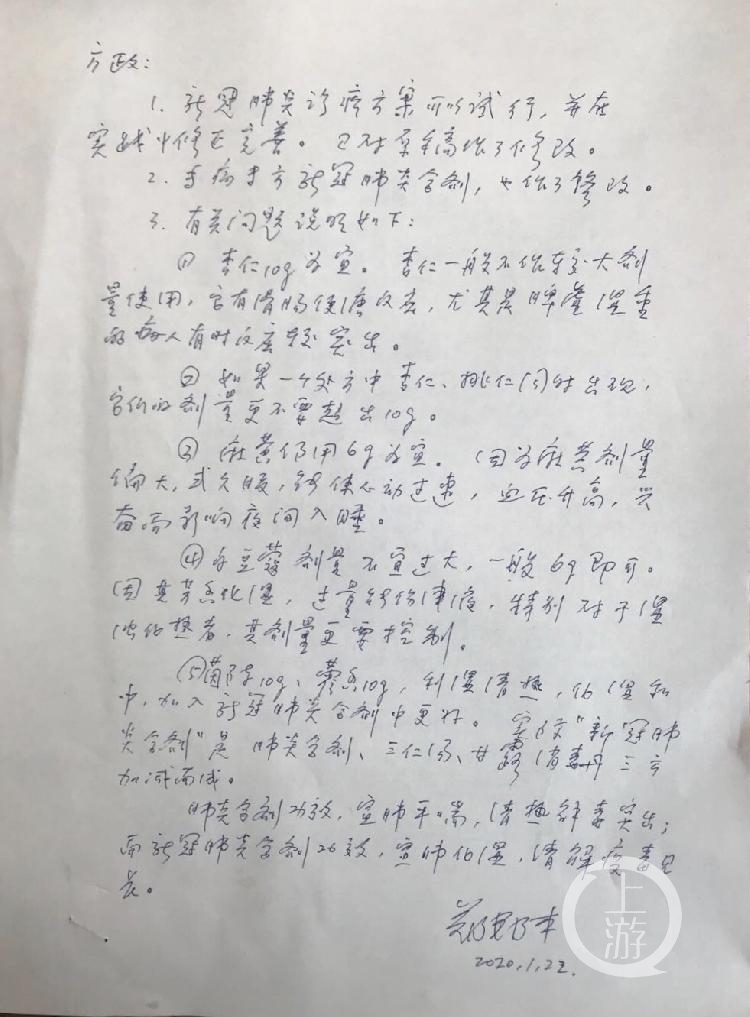 方政：
1. 新冠肺炎诊疗方案可以试行，并在
实践中修正完善。已对原稿作了修改。
2. 专病专方新冠肺炎合剂，也作了修改。
3. 有关问题说明如下：
① 杏仁10g为宜。杏仁一般不作较大剂
量使用，它有滑肠便溏反应，尤其是脾虚湿重
的病人有时反应较突出。
② 如果一个处方中杏仁、桃仁同时出现，
它们的剂量更不要超出10g。
③ 麻黄仍用6g为宜。因为麻黄剂量
偏大，或久服，能使心动过速，血压升高，兴
奋而影响夜间入睡。
④ 白豆蔻剂量不宜过大，一般6g即可。
因其芳香化湿，过量能伤津液，特别对于湿
浊化热者，其剂量更要控制。
⑤茵陈10g、藿香10g，利湿清热，化湿和
中，加入新冠肺炎合剂中更好。实际"新冠肺
炎合剂"是肺炎合剂、三仁汤、甘露消毒丹三方
加减而成。
肺炎合剂功效，宣肺平喘，清热解毒突出；
而新冠肺炎合剂功效，宣肺化湿，清解疫毒见
长。
2020.1.22
上游